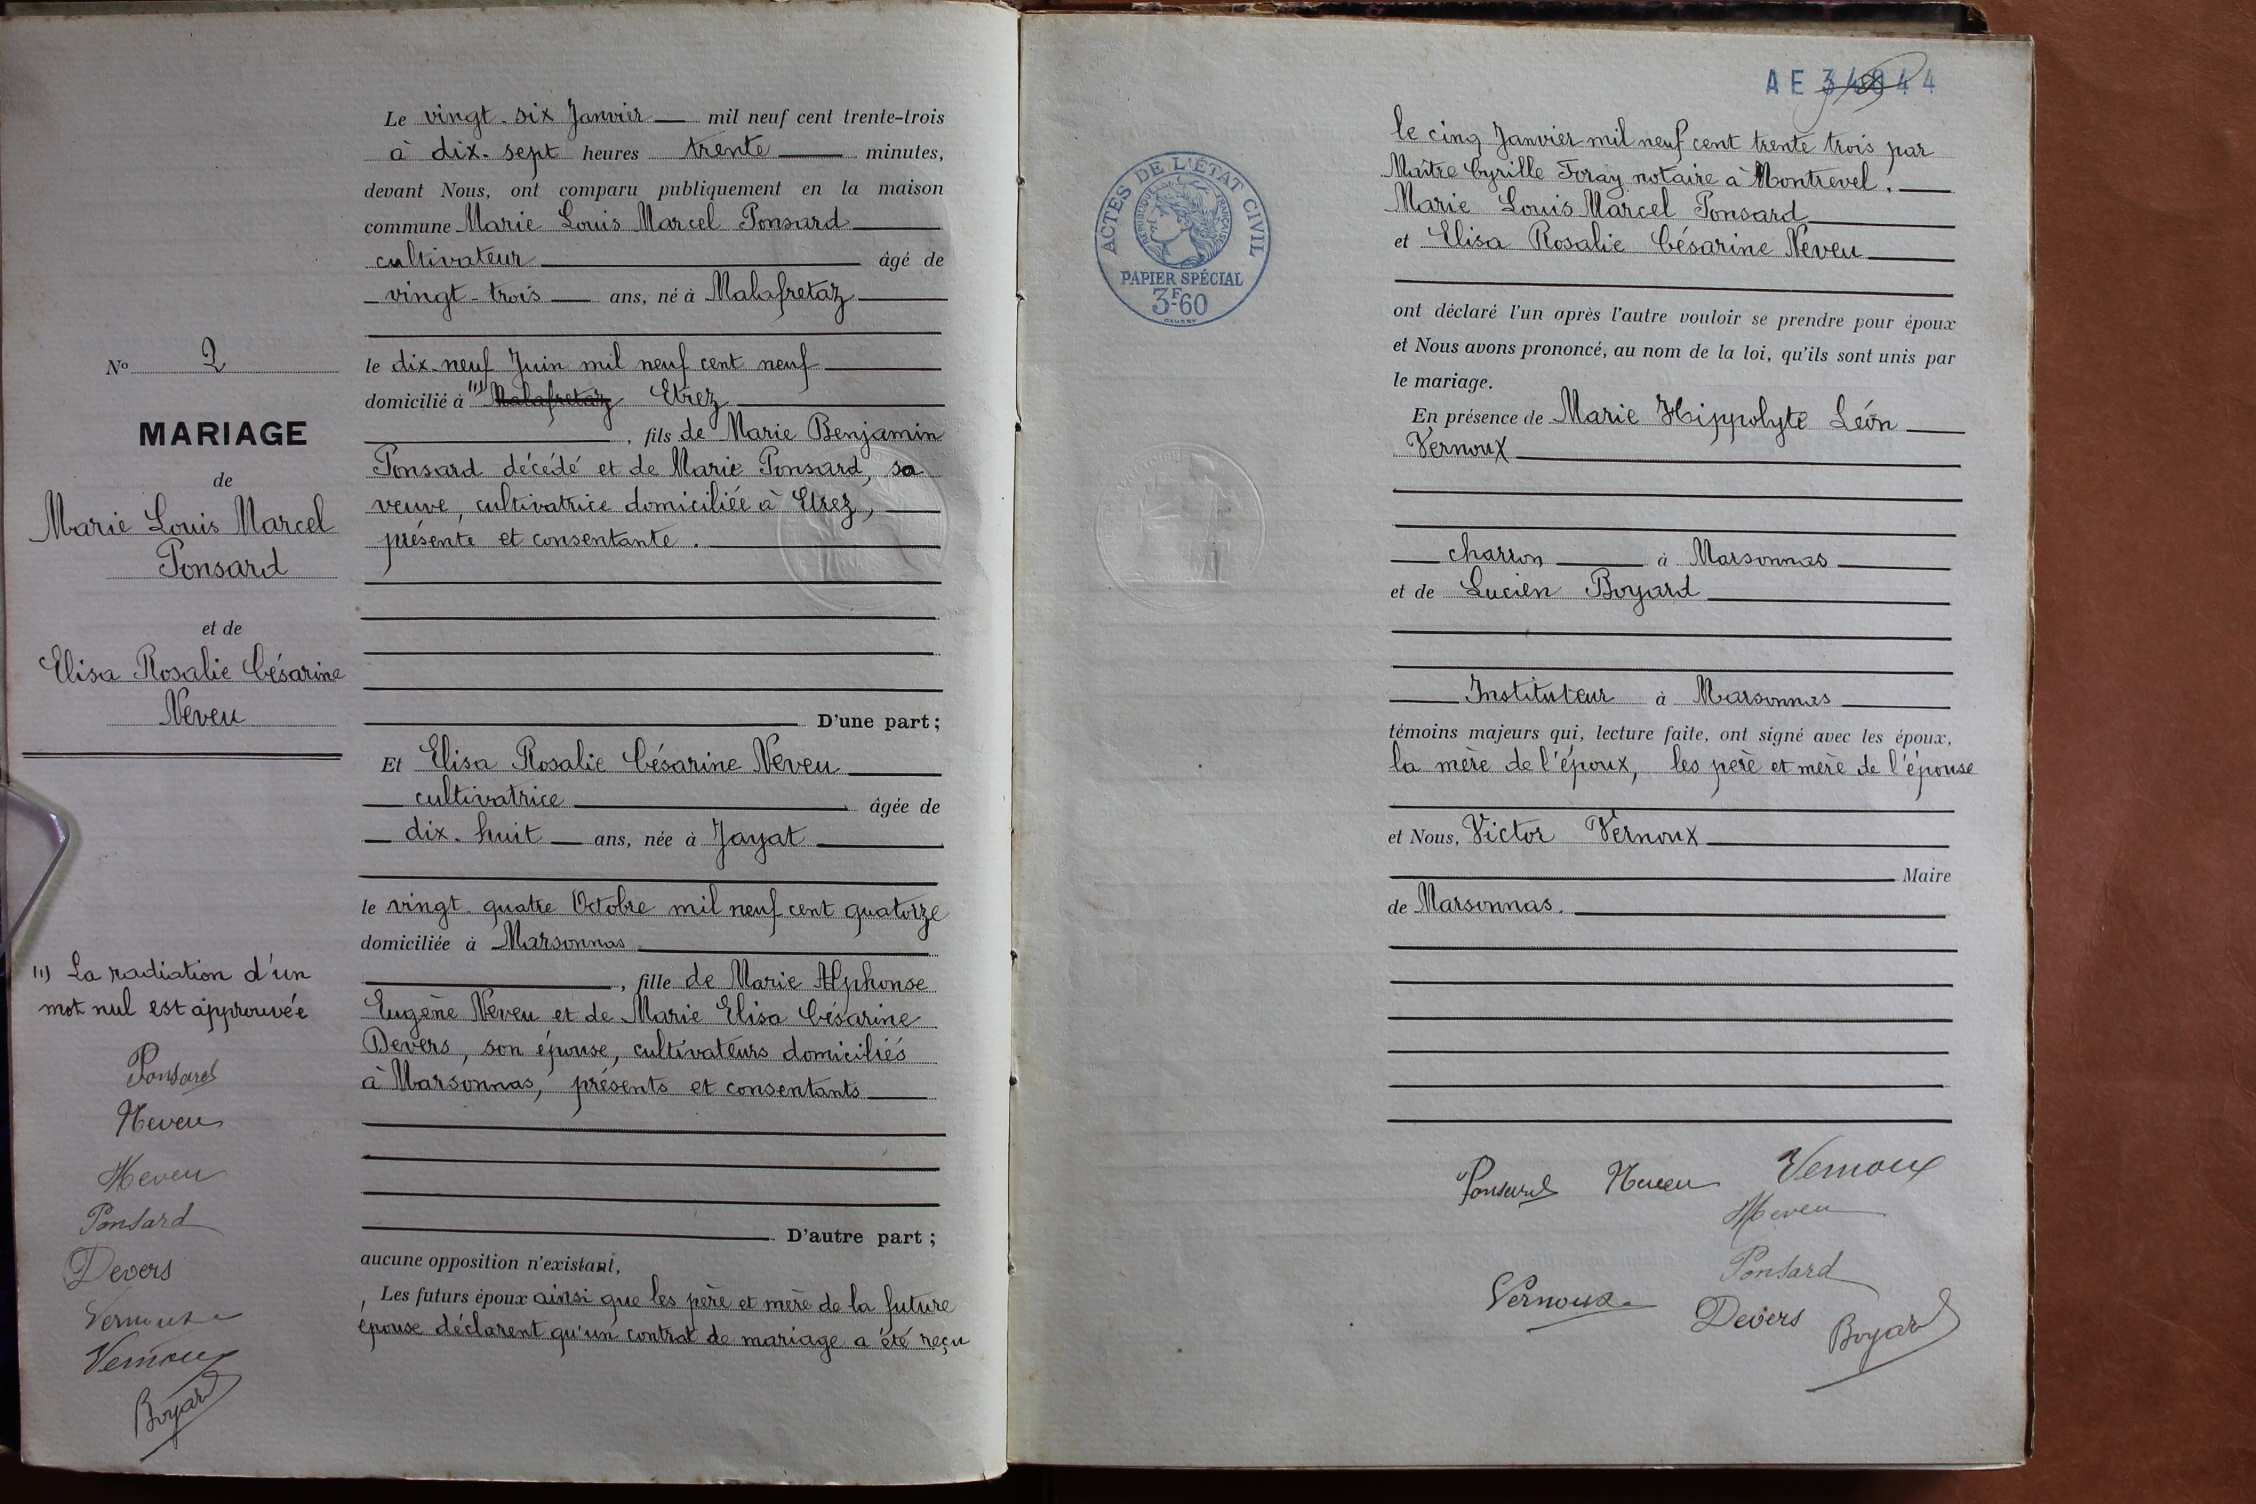 N° 2
MARIAGE
de
Marie Louis Marcel
Ponsard
et de
Elisa Rosalie Césarine
Neveu
(1) La radiation d'un
mot nul est approuvée
Ponsard
Neveu
Neveu
Ponsard
Devers
Vernoux
Vernoux
Boyard
Le vingt-six Janvier mil neuf cent trente-trois
à dix-sept heures trente minutes,
devant Nous, ont comparu publiquement en la maison
commune Marie Louis Marcel Ponsard
cultivateur âgé de
vingt-trois ans, né à Malafretaz
le dix-neuf Juin mil neuf cent neuf
domicilié à (1) Malafretaz Etrez
, fils de Marie Benjamin
Ponsard décédé et de Marie Ponsard, sa
veuve, cultivatrice domiciliée à Etrez,
présente et consentante.
D'une part;
Et Elisa Rosalie Césarine Neveu
cultivatrice âgée de
dix-huit ans, née à Jayat
le vingt-quatre Octobre mil neuf cent quatorze
domiciliée à Marsonnas
, fille de Marie Alphonse
Eugène Neveu et de Marie Elisa Césarine
Devers, son épouse, cultivateurs domiciliés
à Marsonnas, présents et consentants
D'autre part;
aucune opposition n'existant,
Les futurs époux ainsi que les père et mère de la future
épouse déclarent qu'un contrat de mariage a été reçu
AE 34844
ACTES DE L'ÉTAT CIVIL
RÉPUBLIQUE FRANÇAISE
PAPIER SPÉCIAL
3F60
le cinq Janvier mil neuf cent trente trois par
Maître Cyrille Foray notaire à Montrevel.
Marie Louis Marcel Ponsard
et Elisa Rosalie Césarine Neveu
ont déclaré l'un après l'autre vouloir se prendre pour époux
et Nous avons prononcé, au nom de la loi, qu'ils sont unis par
le mariage.
En présence de Marie Hippolyte Léon
Vernoux
charron à Marsonnas
et de Lucien Boyard
Instituteur à Marsonnas
témoins majeurs qui, lecture faite, ont signé avec les époux,
la mère de l'époux, les père et mère de l'épouse
et Nous, Victor Vernoux
Maire
de Marsonnas.
Ponsard Neveu Vernoux
Neveu
Ponsard
Vernoux Devers Boyard